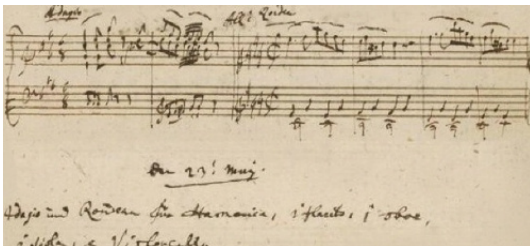 Adagio
All:º Rondeau
Den 23:t May.
Adagio und Rondeau für Harmonica, 1 flauto, 1 oboe,
1 viola, e Violoncello